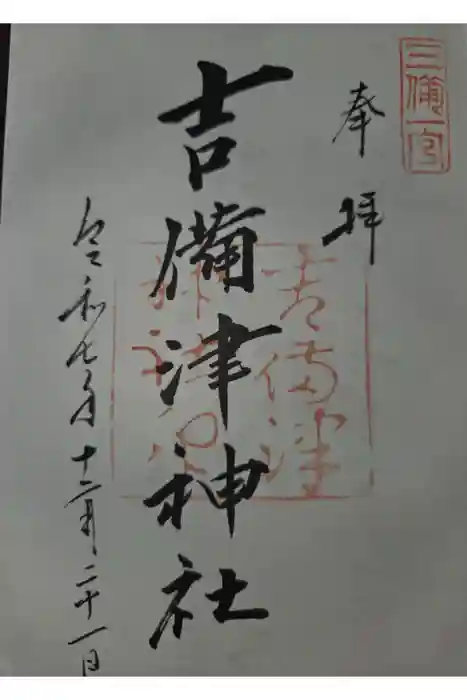 三備一宮
奉拝
吉備津神社
令和七年十二月二十一日
吉備津